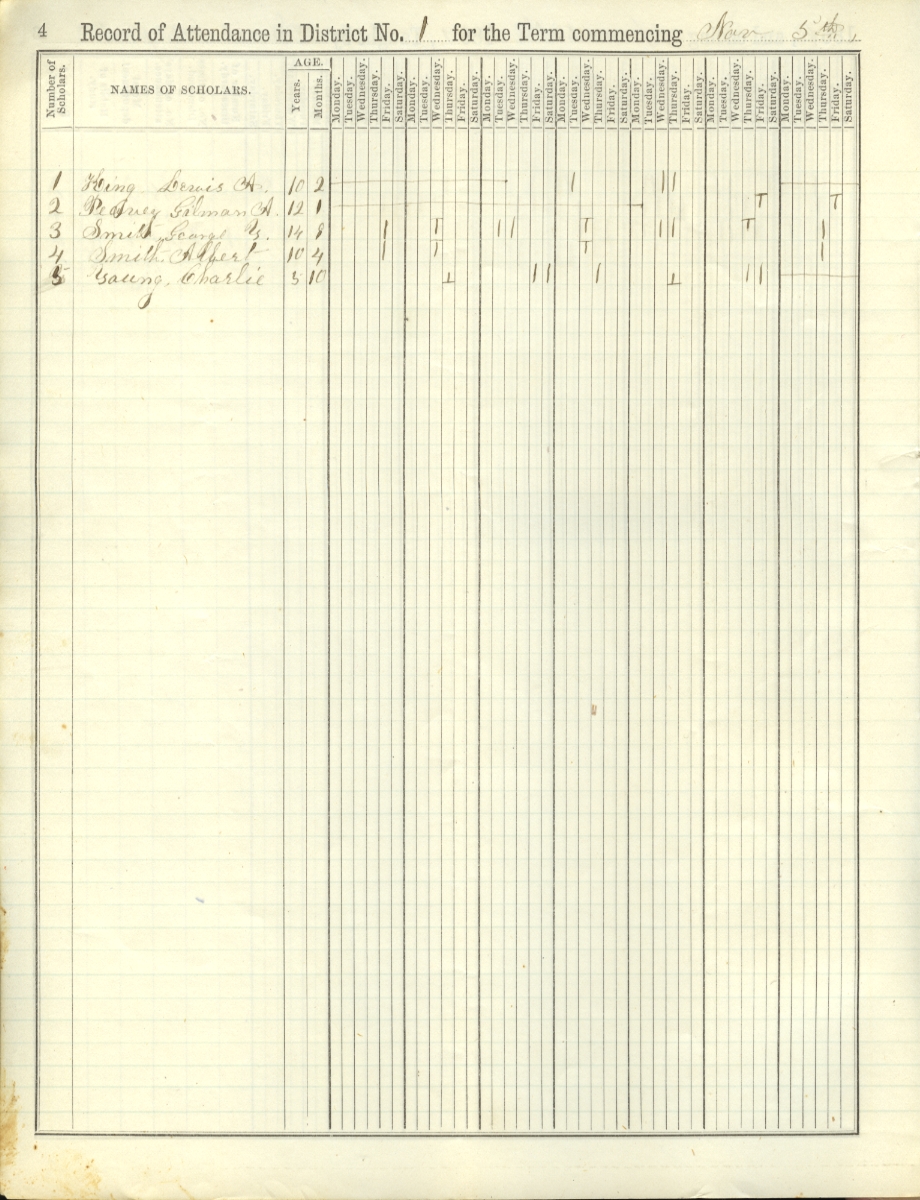 4 Record of Attendance in District No. 1 for the Term commencing Nov 5th
Number of Scholars. NAMES OF SCHOLARS. AGE. Years. Months. Monday. Tuesday. Wednesday. Thursday. Friday. Saturday. Monday. Tuesday. Wednesday. Thursday. Friday. Saturday. Monday. Tuesday. Wednesday. Thursday. Friday. Saturday. Monday. Tuesday. Wednesday. Thursday. Friday. Saturday. Monday. Tuesday. Wednesday. Thursday. Friday. Saturday. Monday. Tuesday. Wednesday. Thursday. Friday. Saturday. Monday. Tuesday. Wednesday. Thursday. Friday. Saturday.
1 King Lewis A. 10 2
2 Gilman A. 12 1 T T
3 Smith, George Y. 14 8 T T T
4 Smith, Albert 10 4 T T
5 Young, Charlie 5 10